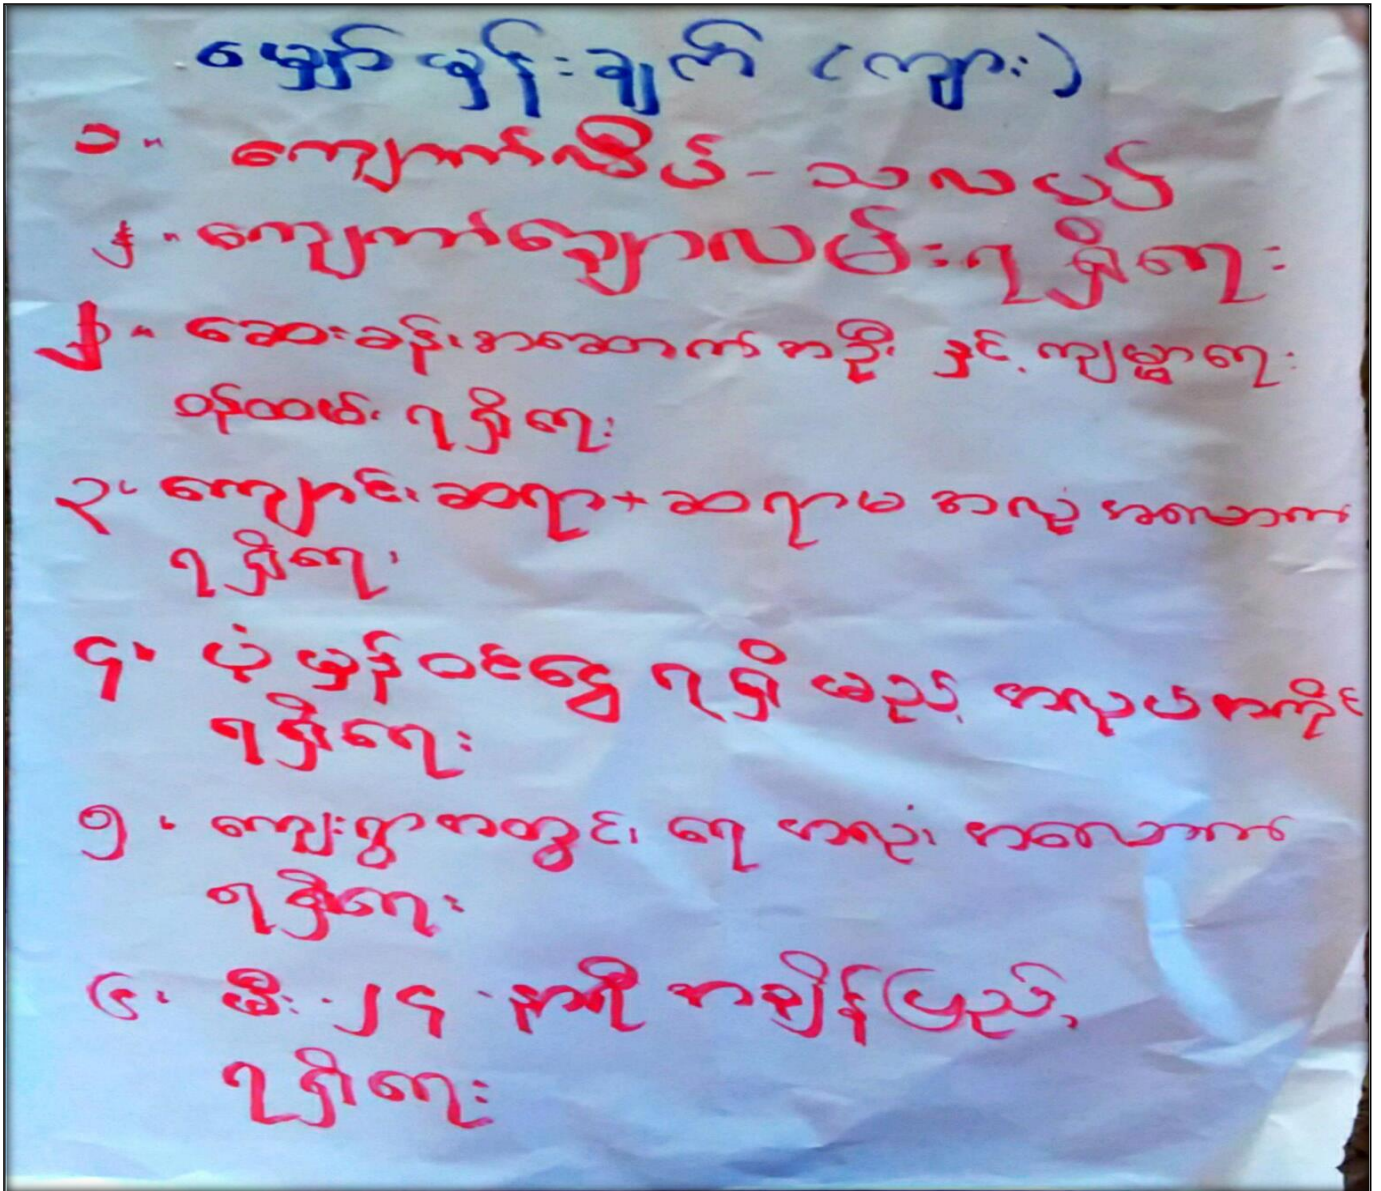 မျှော်မှန်းချက် (ကျား)
၁။ ကျောက်လိပ် - သလပတ်
၂။ ကျောက်ချောလမ်းရရှိရေး
၂။ ဆေးခန်းအဆောက်အဦး နှင့် ကျမ္မာရေး
ဝန်ထမ်း ရရှိရေး
၃။ ကျောင်းဆရာ + ဆရာမ အလုံအလောက်
ရရှိရေး
၄။ ပုံမှန်ဝင်ငွေ ရရှိမည့် အလုပ်အကိုင်
ရရှိရေး
၅။ ကျေးရွာအတွင်း ရေ အလုံအလောက်
ရရှိရေး
၆။ မီး ၂၄ နာရီ အချိန်ပြည့်
ရရှိရေး